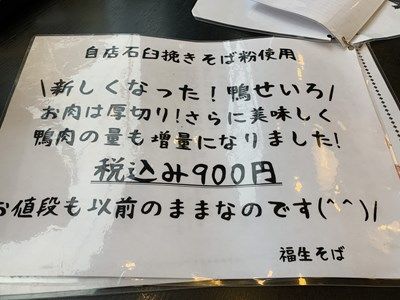 自店石臼挽きそば粉使用
\新しくなった！鴨せいろ/
お肉は厚切り!さらに美味しく
鴨肉の量も増量になりました!
税込み900円
お値段も以前のままなのです(^^)/
福生そば